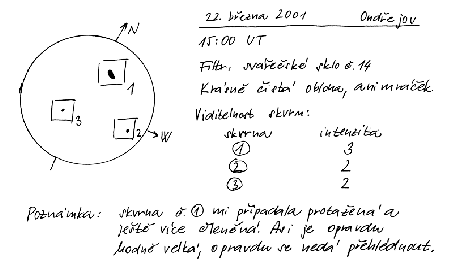 22. března 2001 Ondřejov
15:00 UT
Filtr: svářečské sklo č. 14
Krásně čistá obloha, ani mráček.
Viditelnost skvrn:
skvrna intenzita
1 3
2 2
3 2
N
1
3
2
W
Poznámka: skvrna č. 1 mi připadala protažená a
ještě více členěná. Ani je opravdu
hodně velká, opravdu se nedá přehlédnout.